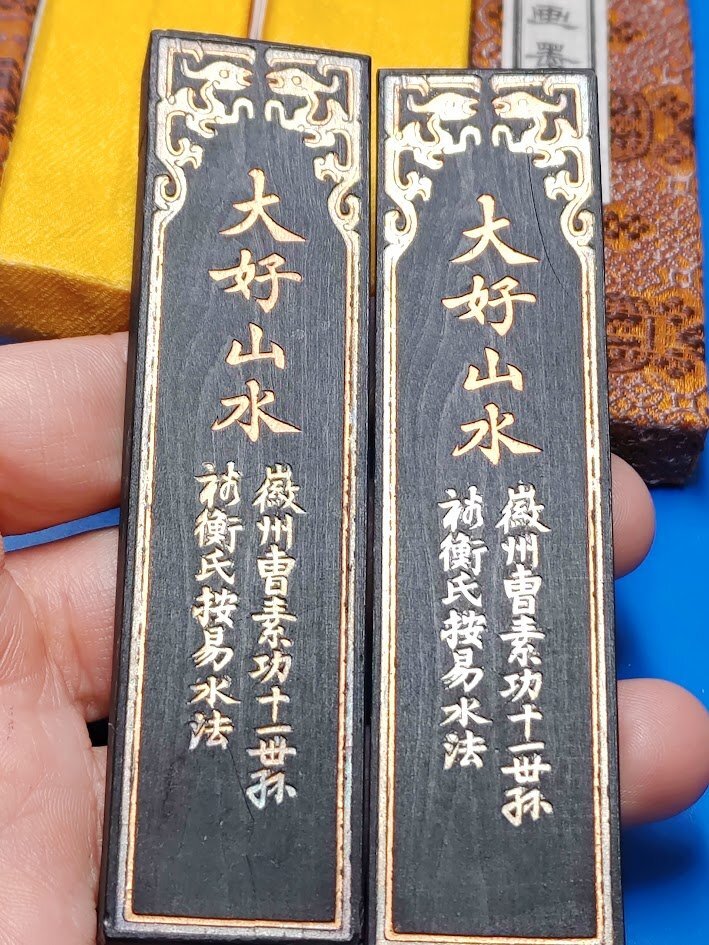 画墨
大好山水
徽州曹素功十一世孙
衡氏按易水法
大好山水
徽州曹素功十一世孙
衡氏按易水法